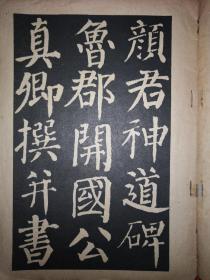 顔君神道碑
魯郡開國公
真卿撰并書